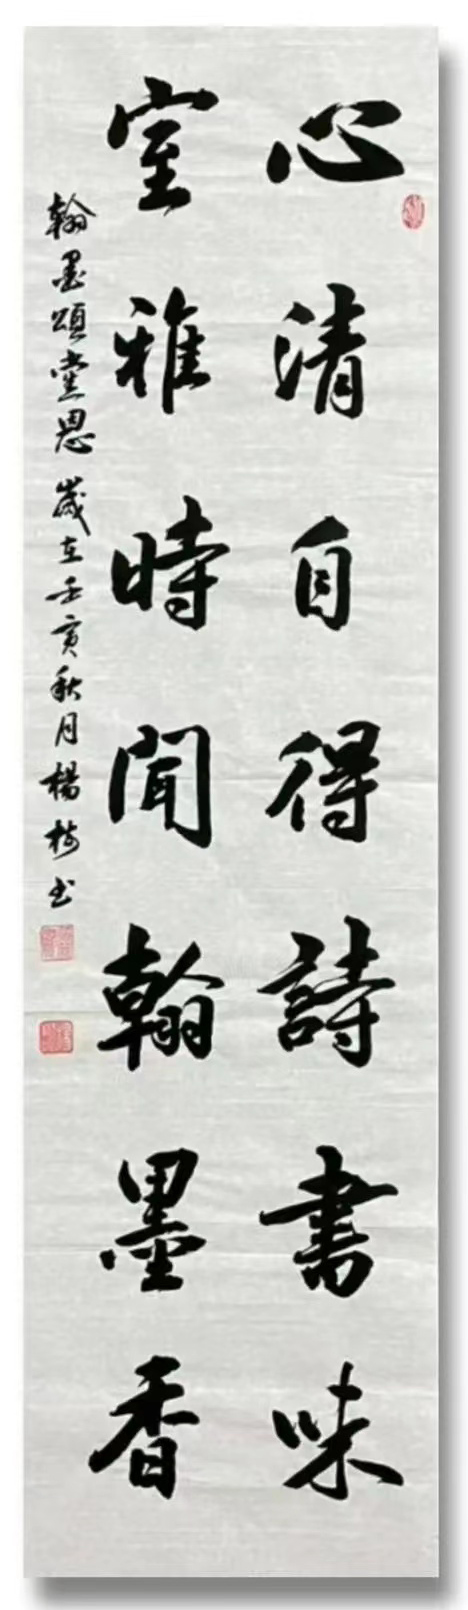 心清自得詩書味
室雅時聞翰墨香
翰墨頌党恩歲在壬寅秋月楊梅書